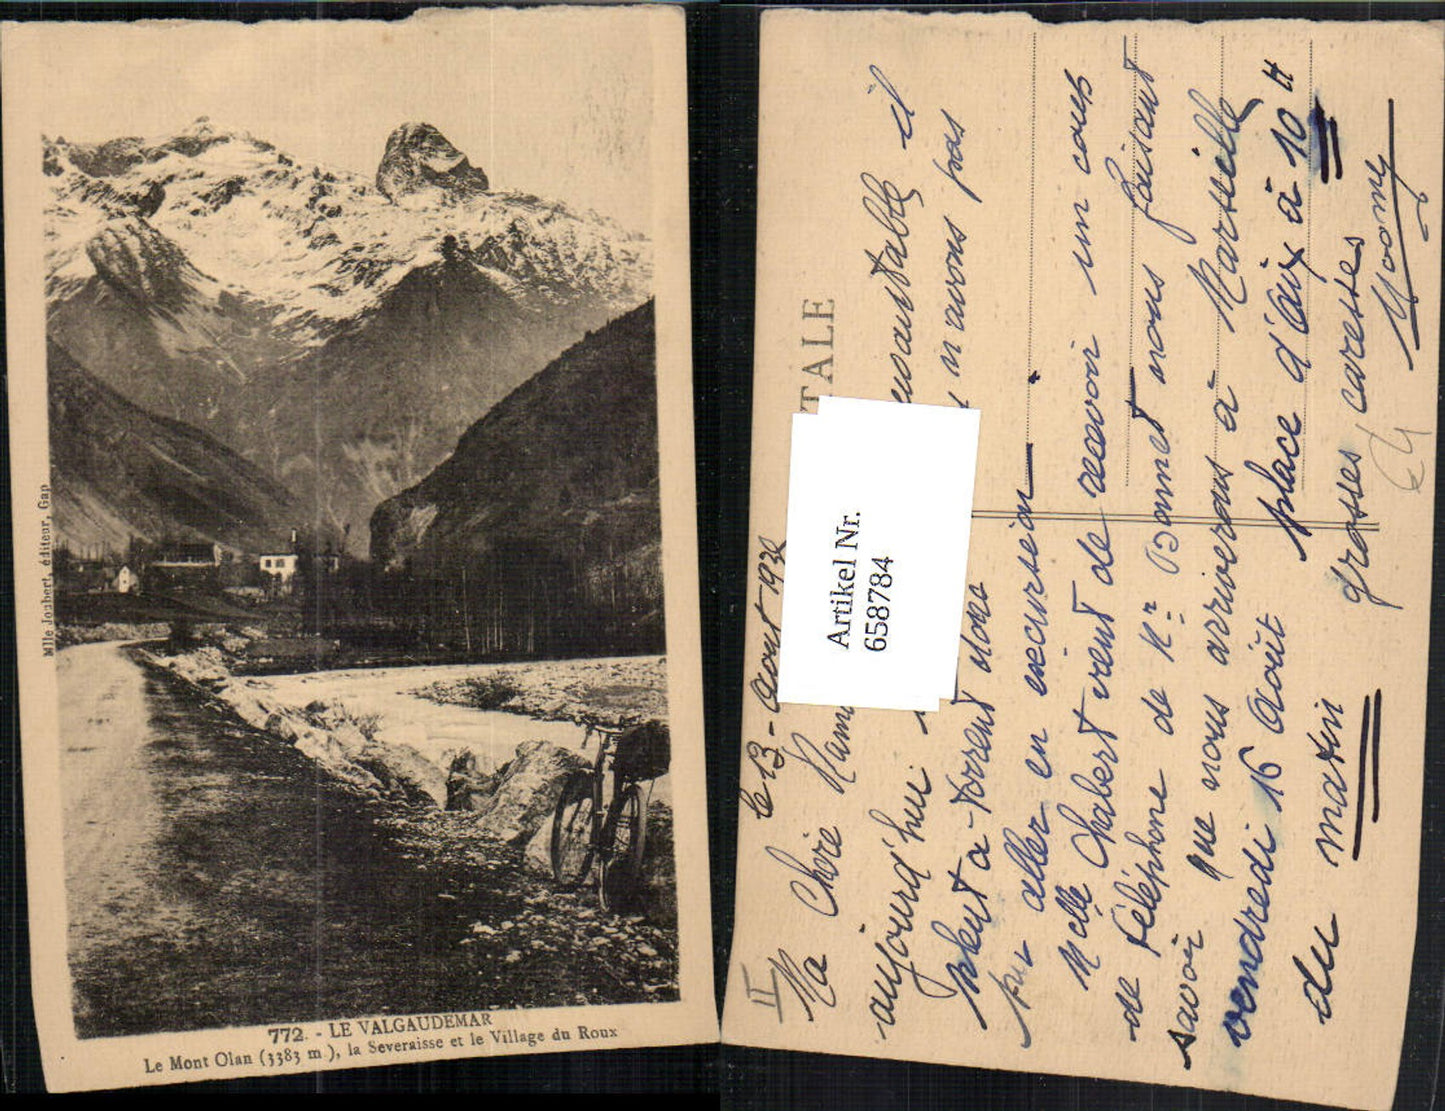 Mlle Joubert, éditeur, Gap
772. - LE VALGAUDEMAR
Le Mont Olan (3383 m), la Severaisse et le Village du Roux
TALE
Artikel Nr.
658784
II
le 13 - aout 193
Ma Chère
aujourd'hui il
pleut a torrent nous n'avons pas
pu aller en excursion
Melle Chabert vient de recevoir un coup
de téléphone de Mr Bonnet nous faisant
savoir que nous arriverons à Marseille
vendredi 16 Août place d'Aix à 10 H
du matin grosses caresses